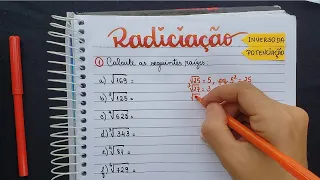 Radiciação
INVERSO DA
POTENCIAÇÃO
① Calcule as seguintes raízes:
a) √169 =
b) ³√125 =
c) ⁴√625 =
d) ³√343 =
e) ⁴√81 =
f) ⁶√729 =
√25 = 5, pq 5² = 25
³√27 = 3